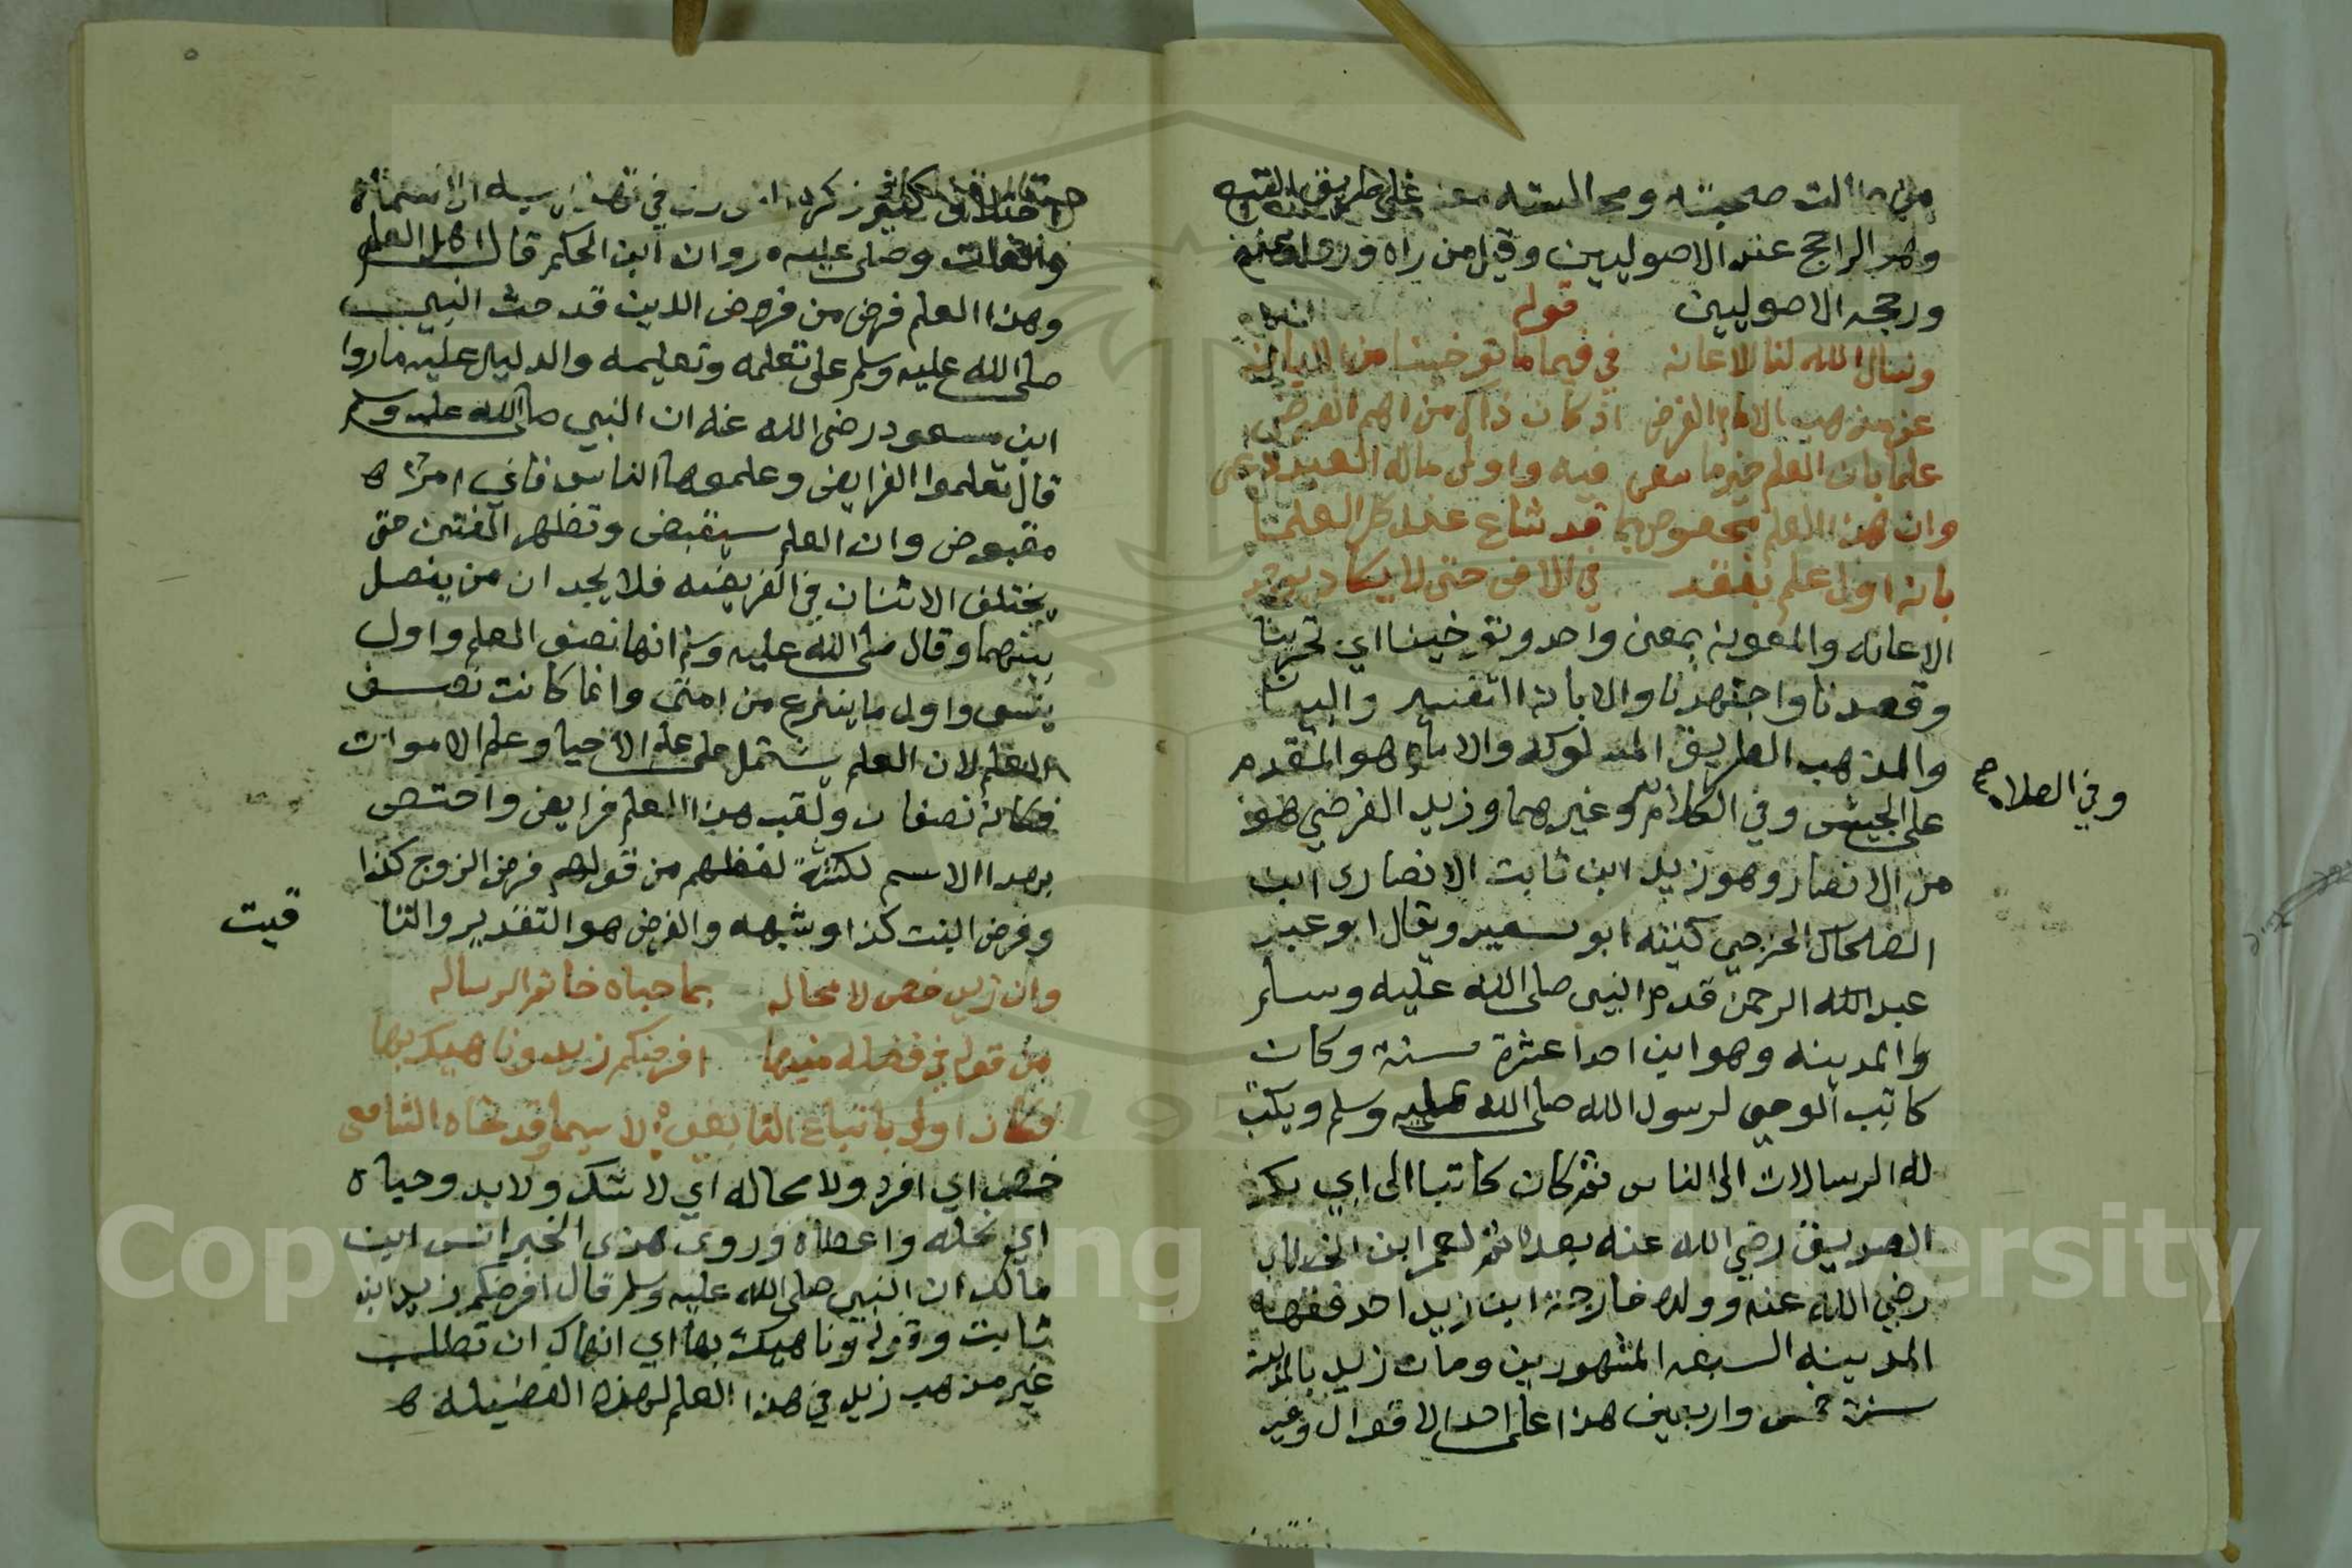 من طالت صحبته ومجالسته معه على طريق التبع
وهو الراجح عند الاصوليين وقيل من راه وروى عنه
ورجحه الاصوليين قوله
ونسال الله لنا الاعانه في فيما توخينا من الابانه
عن مذهب الامام الفرضي اذ كان ذاك من اهم الغرض
علما بان العلم خير ما سعي فيه واولى ماله العبد دعي
وان هذا العلم مخصوص بما قد شاع عند كل العلما
بانه اول علم يفقد في الارض حتى لا يكاد يوجد
الاعانه والمعونه بمعنى واحد وتوخينا اي تحرينا
وقصدنا واجتهدنا والابانه التفسير والبيان
والمذهب الطريق المسلوكه والامام هو المتقدم
على الجيش وفي الكلام وغيرهما وزيد الفرضي هو
وفي الصلاه صح
من الانصار وهو زيد ابن ثابت الانصاري ابن
الضحاك الخزرجي كنيته ابو سعيد ويقال ابو عبد
عبد الله الرحمن قدم النبي صلى الله عليه وسلم
والمدينه وهو ابن احدا عشرة سنة وكان
كاتب الوحي لرسول الله صلى الله عليه وسلم ويكتب
له الرسالات الى الناس ثم كان كاتبا الى ابي بكر
الصديق رضي الله عنه بعده ثم لعمر ابن الخطاب
رضي الله عنه وولده خارجة ابن زيد احد فقهاء
المدينه السبعه المشهورين ومات زيد بالمدينة
سنة خمس واربعين هذا على احد الاقوال وغير
وصلى عليه مروان ابن الحكم قال اهل العلم
وهذا العلم فرض من فروض الدين قد حث النبي
صلى الله عليه وسلم على تعلمه وتعليمه والدليل عليه ماروا
ابن مسعود رضي الله عنه ان النبي صلى الله عليه وسلم
قال تعلموا الفرايض وعلموها الناس فاني امرء
مقبوض وان العلم سيقبض وتظهر الفتن حتى
يختلف الاثنان في الفريضه فلا يجدان من يفصل
بينهما وقال صلى الله عليه وسلم انها نصف العلم واول
ينسى واول ما ينتزع من امتي وانما كانت نصف
العلم لان العلم يشتمل على علم الاحيا وعلم الاموات
فكانه نصفان ولقب هذا العلم فرايض واختص
بهذا الاسم لكثرة لفظهم من قولهم فرض الزوج كذا
وفرض البنت كذا وشبهه والفرض هو التقدير والتا
قيت
وان زيد خص لا محاله بما حباه خاتم الرساله
من قوله في فضله منبها افرضكم زيد وناهيك بها
فكان اولى باتباع التابعي لا سيما وقد نحاه الشافعي
خص اي افرد ولا محاله اي لا شك ولا بد وحباه
اي نحله واعطاه وروى هذى الخبر انس ابن
مالك ان النبي صلى الله عليه وسلم قال افرضكم زيد ابن
ثابت وقوله وناهيك بها اي انهاك ان تطلب
غير مذهب زيد في هذا العلم لهذه الفضيله
Copyright © King Saud University